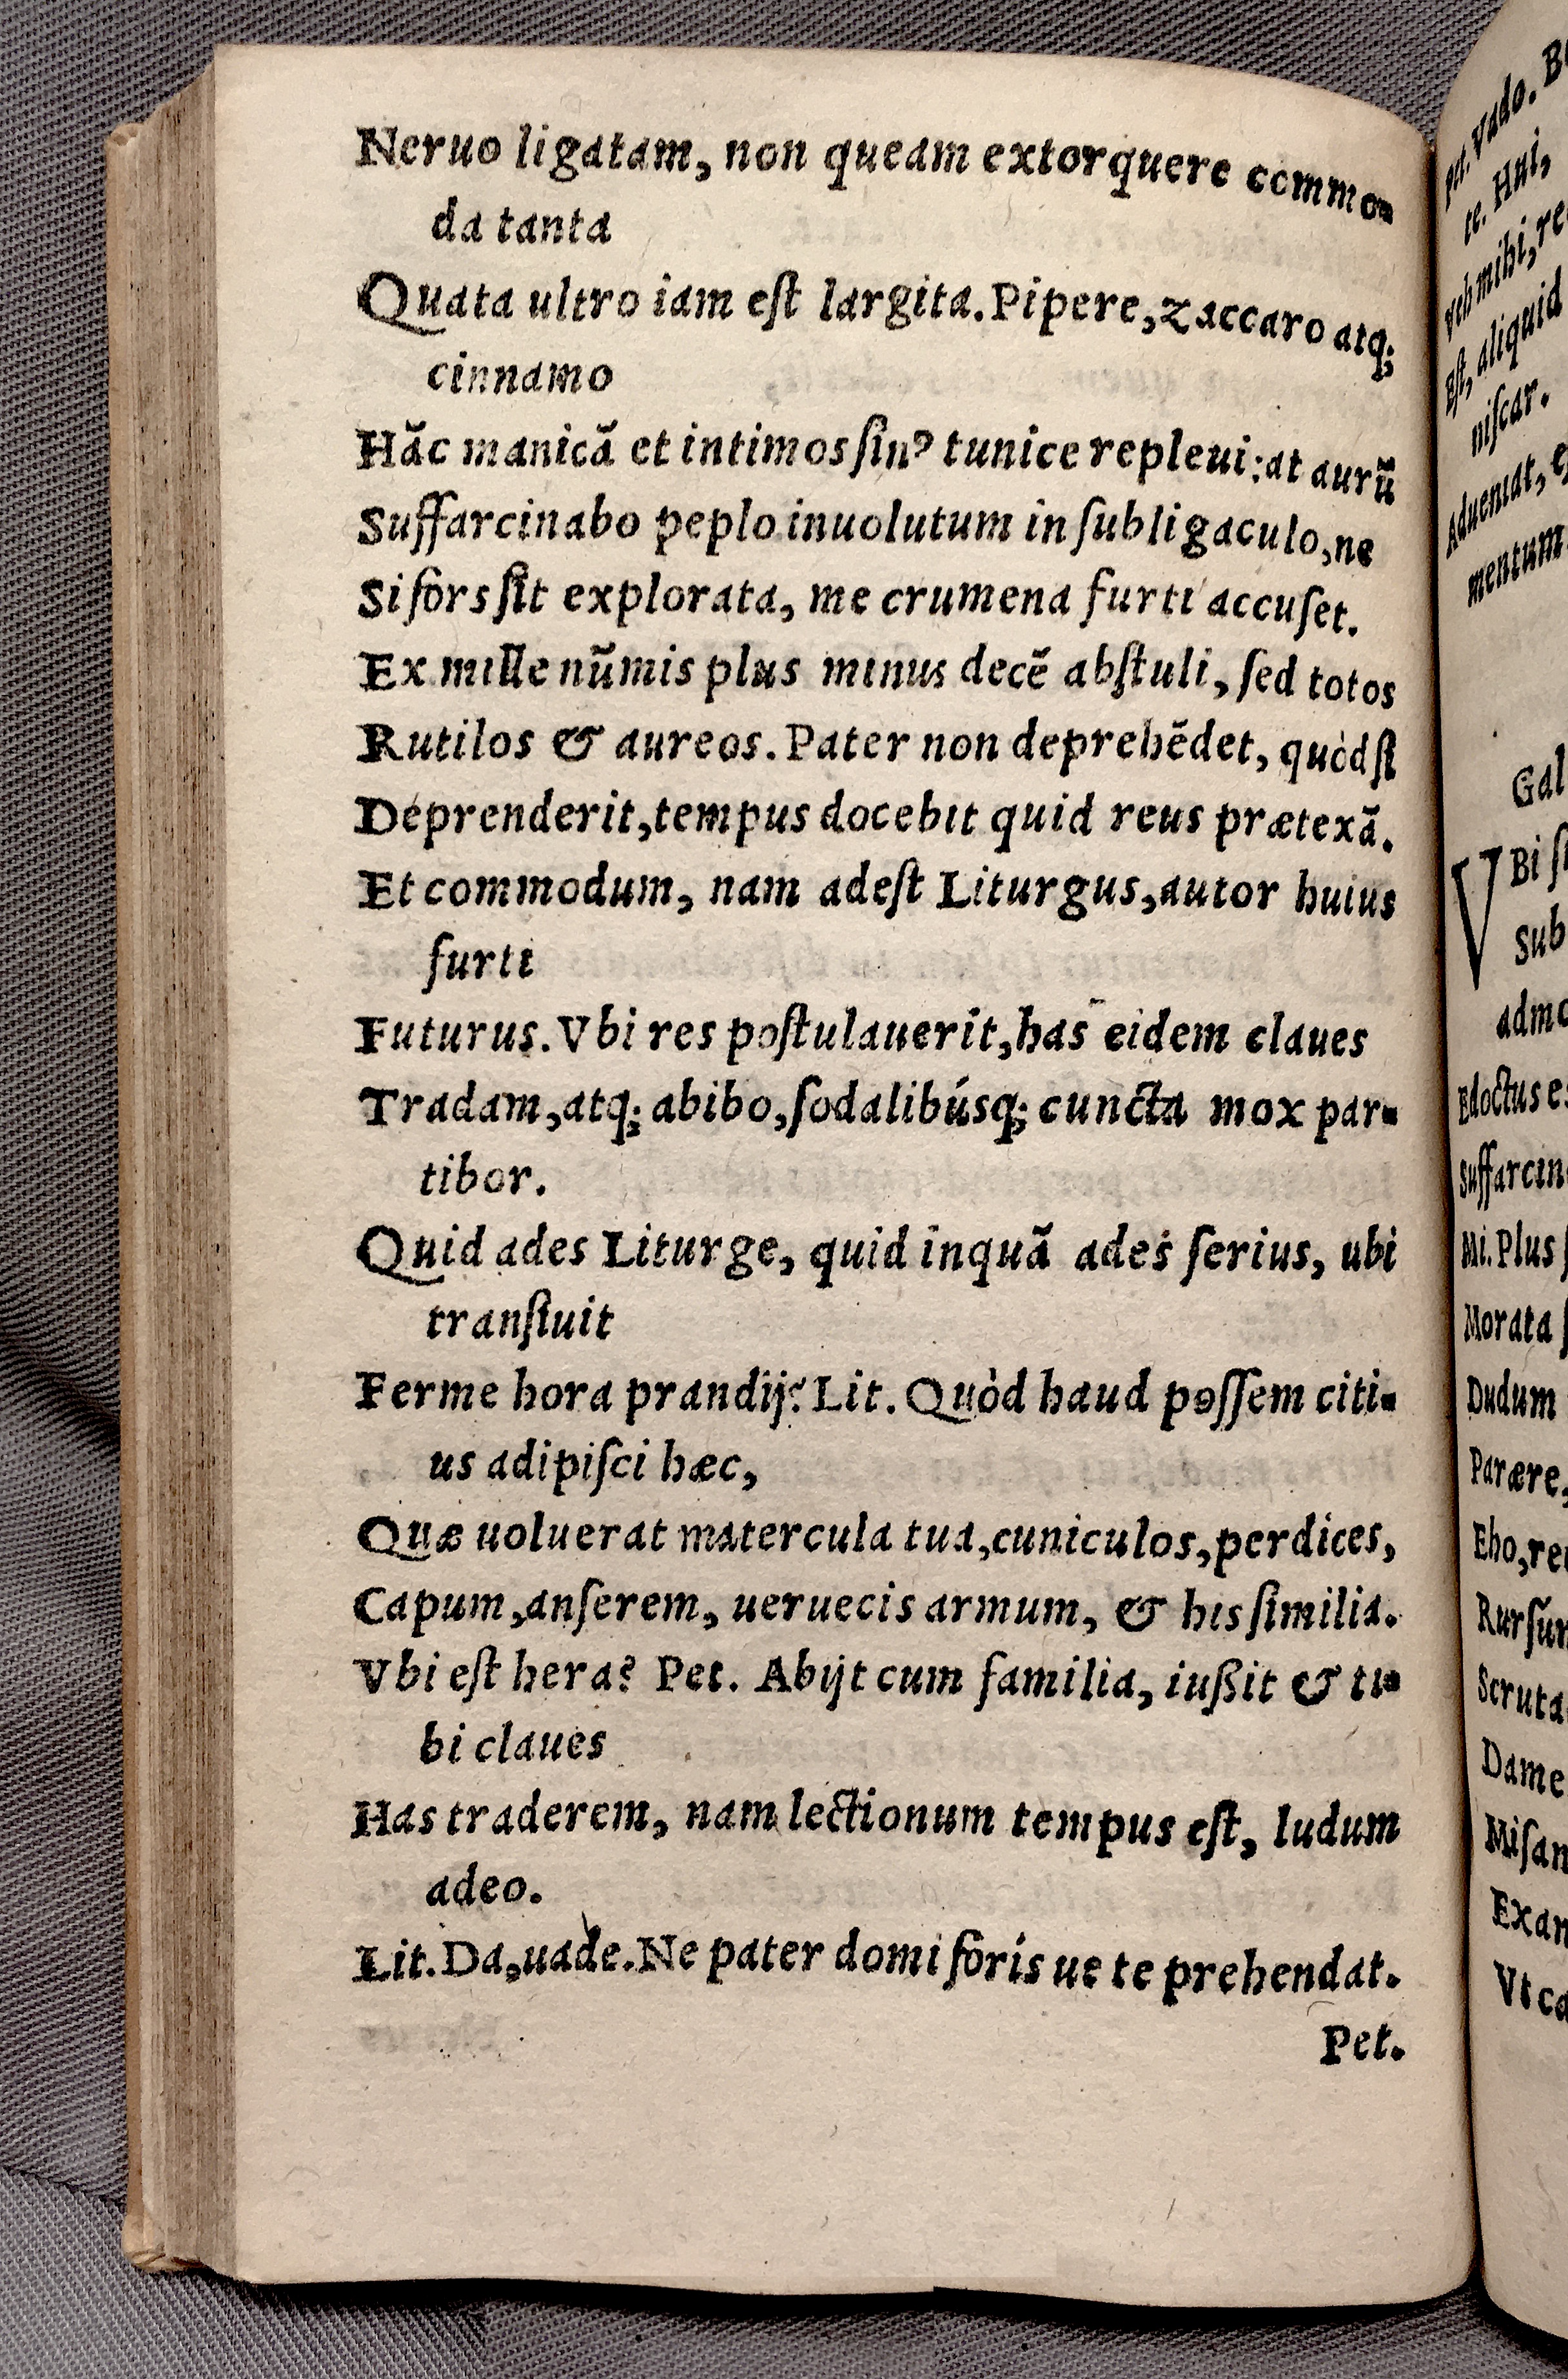 Neruo ligatam, non queam extorquere commo-
da tanta
Quata ultro iam eſt largita. Pipere, zaccaro atq;
cinnamo
Hāc manicā et intimos ſinꝰ tunice repleui: at aurū
Suffarcinabo peplo inuolutum in ſubligaculo, ne
Si fors ſit explorata, me crumena furti accuſet.
Ex mille nūmis plus minus decē abſtuli, ſed totos
Rutilos & aureos. Pater non deprehēdet, quòd ſi
Deprenderit, tempus docebit quid reus prætexā.
Et commodum, nam adeſt Liturgus, autor huius
furti
Futurus. Vbi res poſtulauerit, has eidem claues
Tradam, atq; abibo, ſodalibúsq; cuncta mox par-
tibor.
Quid ades Liturge, quid inquā ades ſerius, ubi
tranſiuit
Ferme hora prandij? Lit. Quòd haud poſſem citi-
us adipiſci hæc,
Quæ uoluerat matercula tua, cuniculos, perdices,
Capum, anſerem, ueruecis armum, & his ſimilia.
Vbi eſt hera? Pet. Abijt cum familia, iußit & ti-
bi claues
Has traderem, nam lectionum tempus eſt, ludum
adeo.
Lit. Da, uade. Ne pater domi foris ue te prehendat.
Pet.
pet. Vado.
te. Hui,
Veh mihi, re
Eſt, aliquid
niſcar.
Adueniat,
mentum
Gal
VBi
Sub
admo
Edoctus es
Suffarcin
Mi. Plus
Morata
Dudum
Parære,
Eho, re
Rurſum
Scruta
Da me
Miſan
Exan
Vt ca